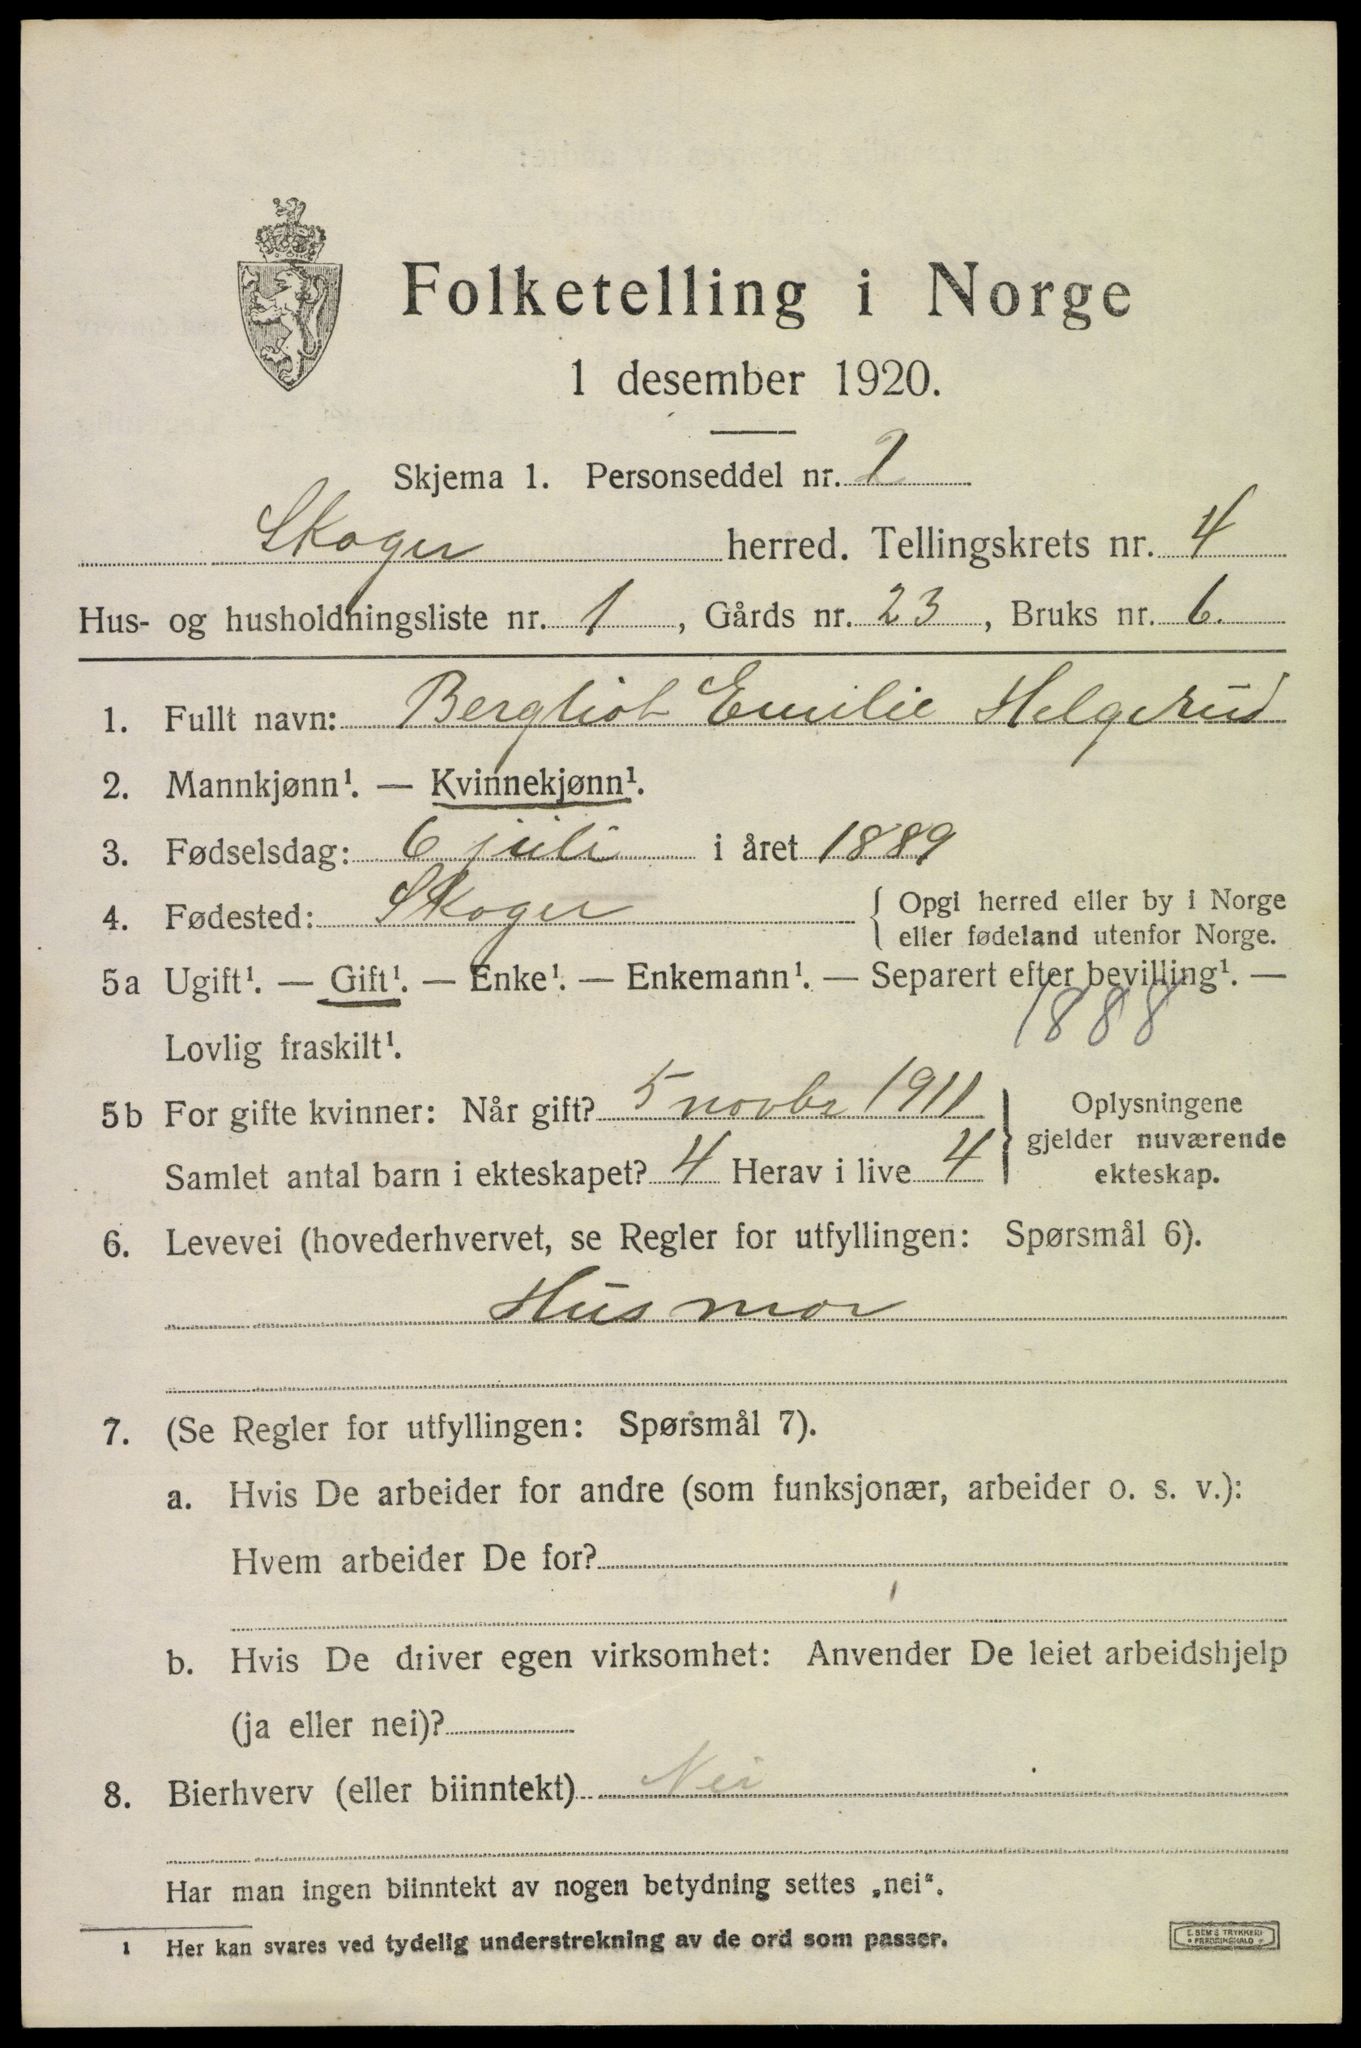 Folketelling i Norge
1 desember 1920.
Skjema 1. Personseddel nr. 2
Skoger herred. Tellingskrets nr. 4
Hus- og husholdningsliste nr. 1, Gårds nr. 23, Bruks nr. 6.
1. Fullt navn: Bergliot Emilie Helgerud
2. Mannkjønn¹. — Kvinnekjønn¹.
3. Fødselsdag: 6 juli i året 1889
4. Fødested: Skoger { Opgi herred eller by i Norge
eller fødeland utenfor Norge.
5a Ugift¹. — Gift¹. — Enke¹. — Enkemann¹. — Separert efter bevilling¹. —
Lovlig fraskilt¹. 1888
5b For gifte kvinner: Når gift? 5 novbr 1911
Samlet antal barn i ekteskapet? 4 Herav i live 4
} Oplysningene
gjelder nuværende
ekteskap.
6. Levevei (hovederhvervet, se Regler for utfyllingen: Spørsmål 6).
Husmor
7. (Se Regler for utfyllingen: Spørsmål 7).
a. Hvis De arbeider for andre (som funksjonær, arbeider o. s. v.):
Hvem arbeider De for?
b. Hvis De driver egen virksomhet: Anvender De leiet arbeidshjelp
(ja eller nei)?
8. Bierhverv (eller biinntekt) Nei
Har man ingen biinntekt av nogen betydning settes „nei“.
1 Her kan svares ved tydelig understrekning av de ord som passer.
E. SEM'S TRYKKERI
FREDRIKSHALD